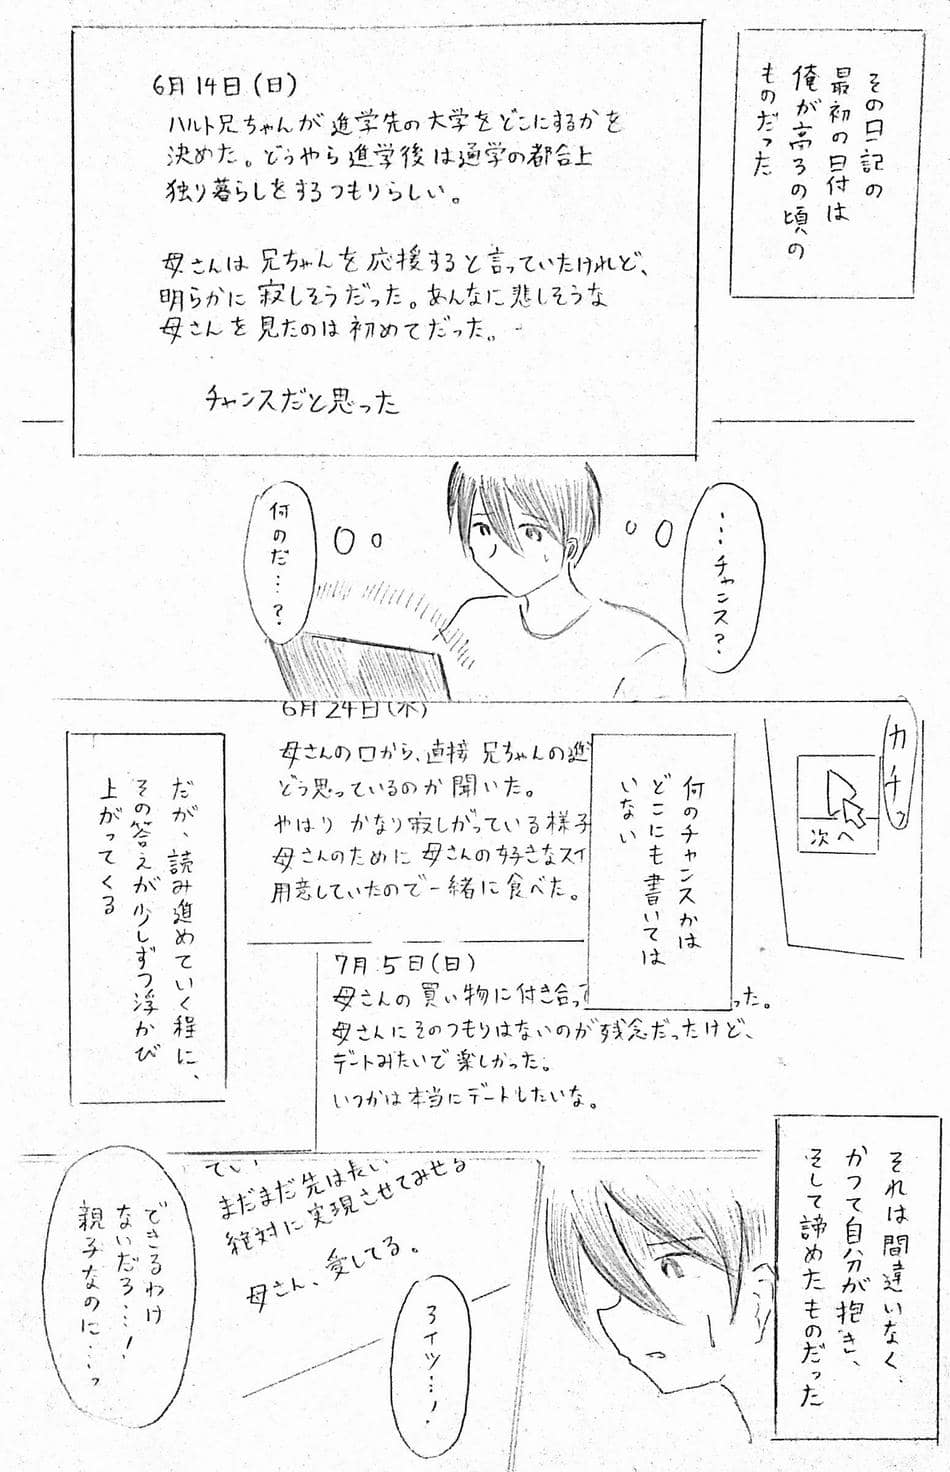 その日記の
最初の日付は
俺が高3の頃の
ものだった
6月14日(日)
ハルト兄ちゃんが進学先の大学をどこにするかを
決めた。どうやら進学後は通学の都合上
独り暮らしをするつもりらしい。
母さんは兄ちゃんを応援すると言っていたけれど、
明らかに寂しそうだった。あんなに悲しそうな
母さんを見たのは初めてだった。
チャンスだと思った
…チャンス?
何のだ…?
カチッ
次へ
何のチャンスかは
どこにも書いては
いない
6月24日(木)
母さんの口から、直接 兄ちゃんの進
どう思っているのか聞いた。
やはり かなり寂しがっている様子
母さんのために 母さんの好きなスイ
用意していたので一緒に食べた。
7月5日(日)
母さんの買い物に付き合っ
った。
母さんにそのつもりはないのが残念だったけど、
デートみたいで楽しかった。
いつかは本当にデートしたいな。
だが、読み進めていく程に、
その答えが少しずつ浮かび
上がってくる
それは間違いなく、
かつて自分が抱き、
そして諦めたものだった
てい
まだまだ先は長い
絶対に実現させてみせる
母さん、愛してる。
アイツ…!
できるわけ
ないだろ…!
親子なのに…っ